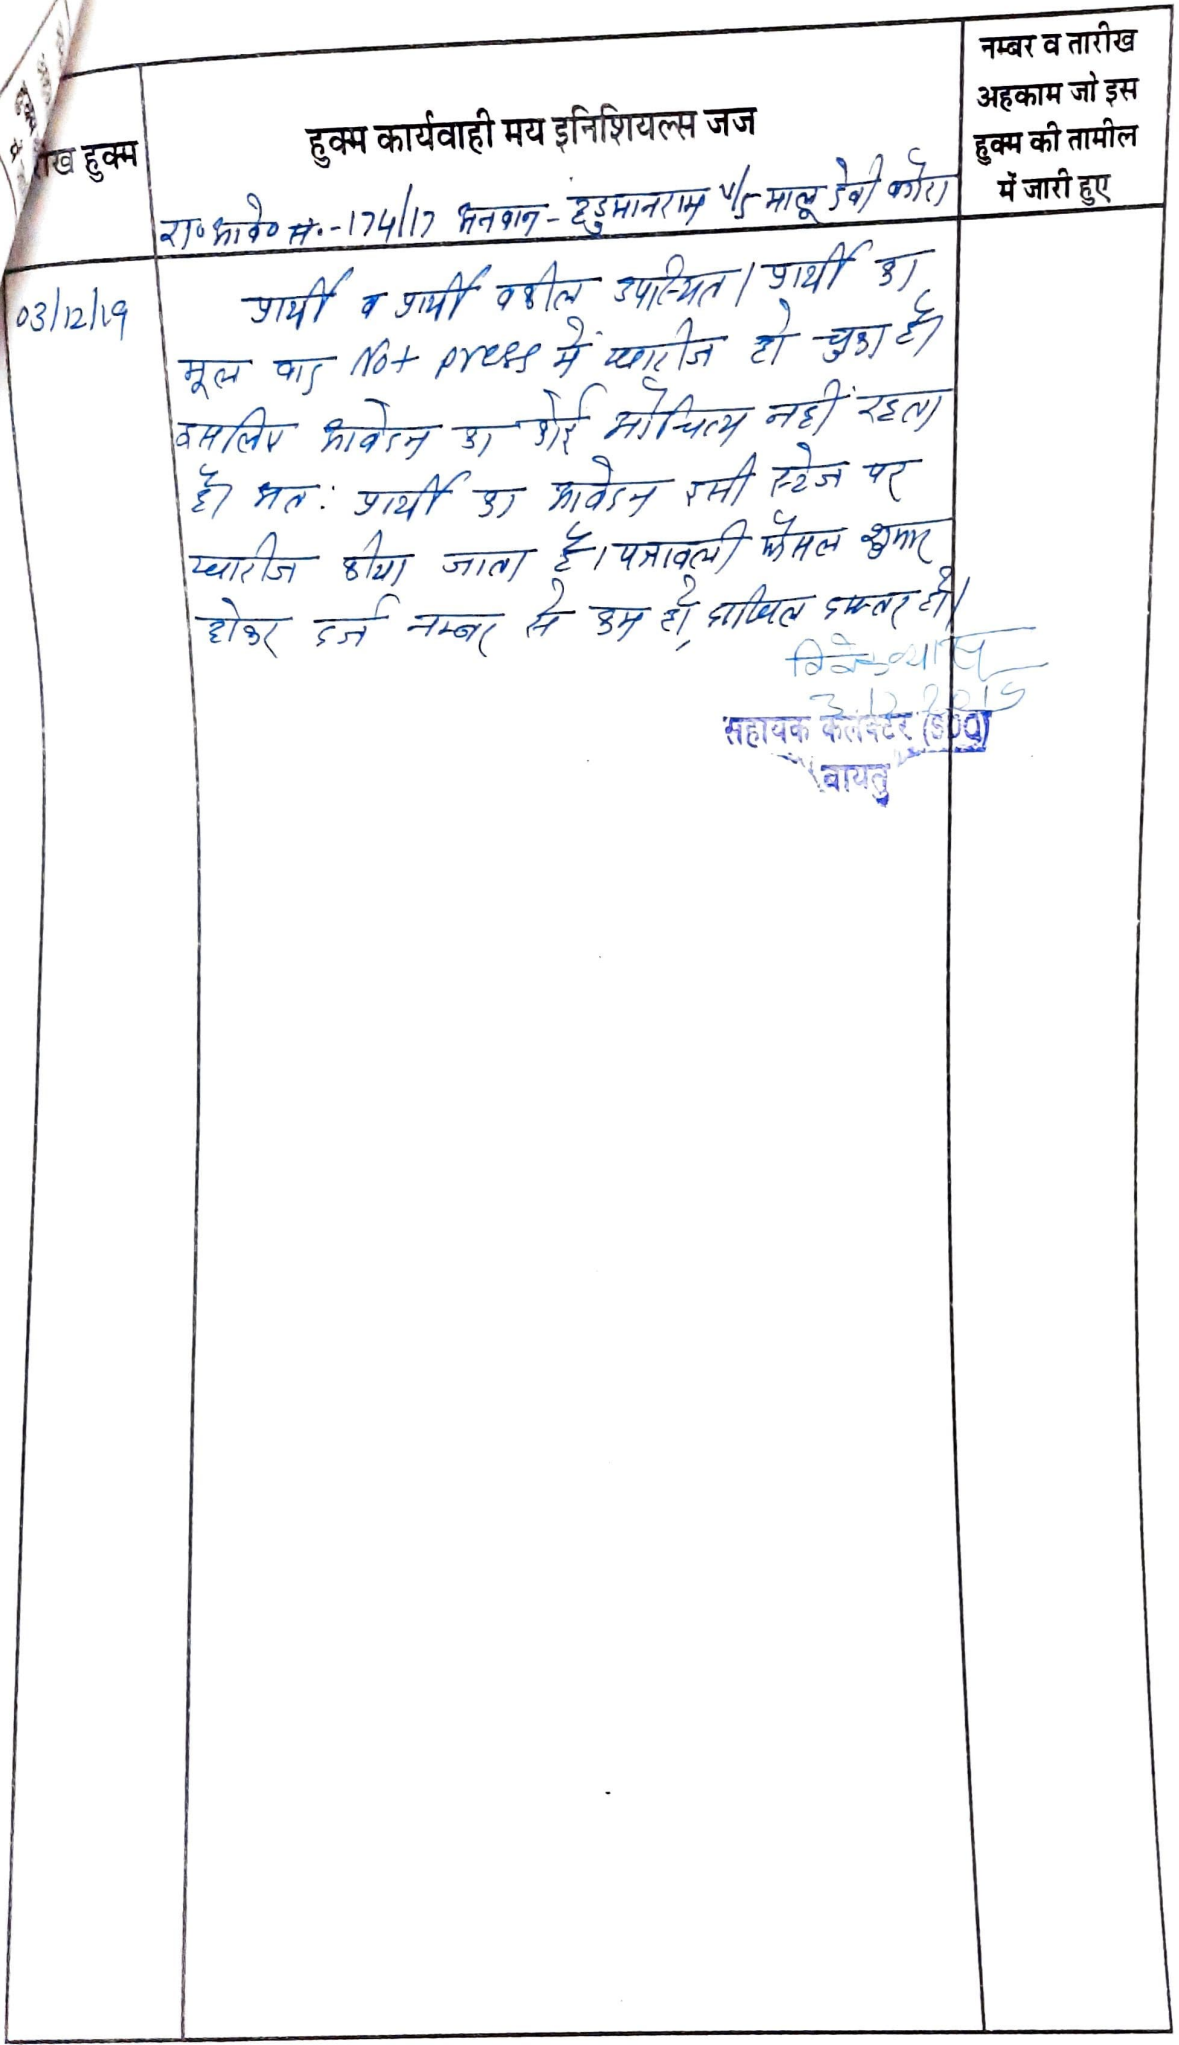 नम्बर व तारीख
अहकाम जो इस
हुक्म की तामील
में जारी हुए
हुक्म कार्यवाही मय इनिशियल्स जज
ीख हुक्म
रा० आवे० सं.-174/17 अनवान - हडुमानराम v/s मालू देवी वगैरा
03/12/19
प्रार्थी व प्रार्थी वकील उपस्थित। प्रार्थी का
मूल वाद Not press में खारीज हो चुका है।
इसलिए आवेदन का कोई औचित्य नहीं रहता
है। अतः प्रार्थी का आवेदन इसी स्टेज पर
खारीज कीया जाता है। पत्रावली फैसल शुमार
होकर दर्ज नम्बर से कम हो, दाखिल दफ्तर हो।
3.12.2019
सहायक कलक्टर (SDO)
बायतु